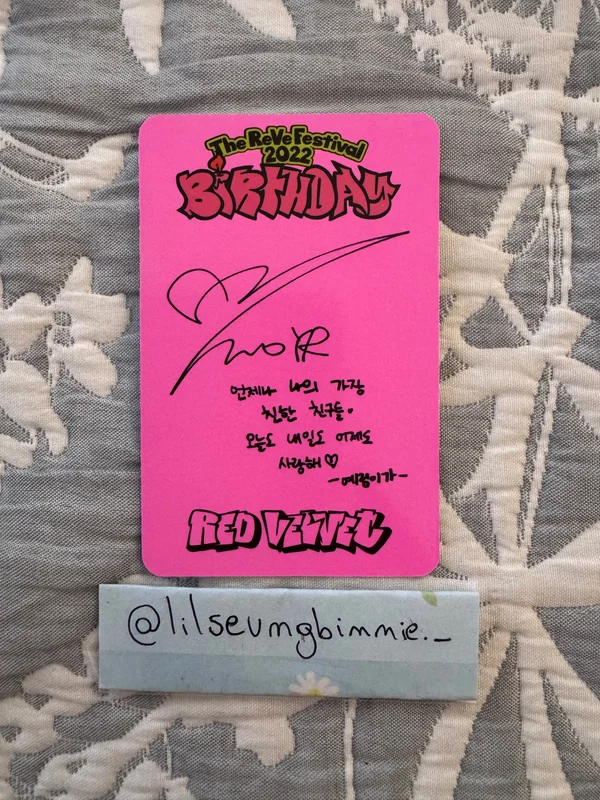 The ReVe Festival
2022
BiRTHDAY
언제나 나의 가장
친한 친구들.
오늘도 내일도 어제도
사랑해♡
-예림이가-
RED VELVET
@lilseungbinnie._